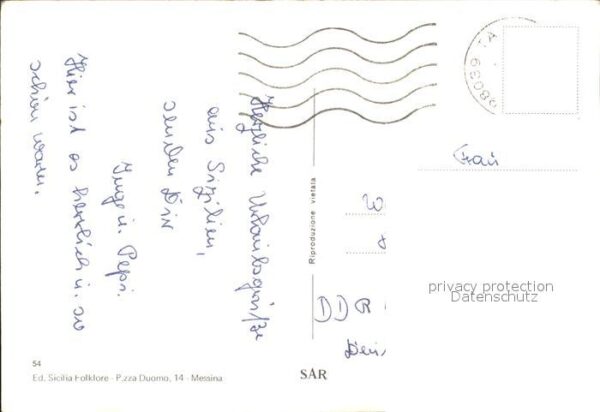 Herzliche Urlaubsgrüße
aus Sizilien,
senden Dir
Inge u. Pepi.
Hier ist es herrlich u. so
schön warm.
98039 TA
Frau
W
DDR
Reproduzione vietata
privacy protection
Datenschutz
54
Ed. Sicilia Folklore - P.zza Duomo, 14 - Messina
SAR